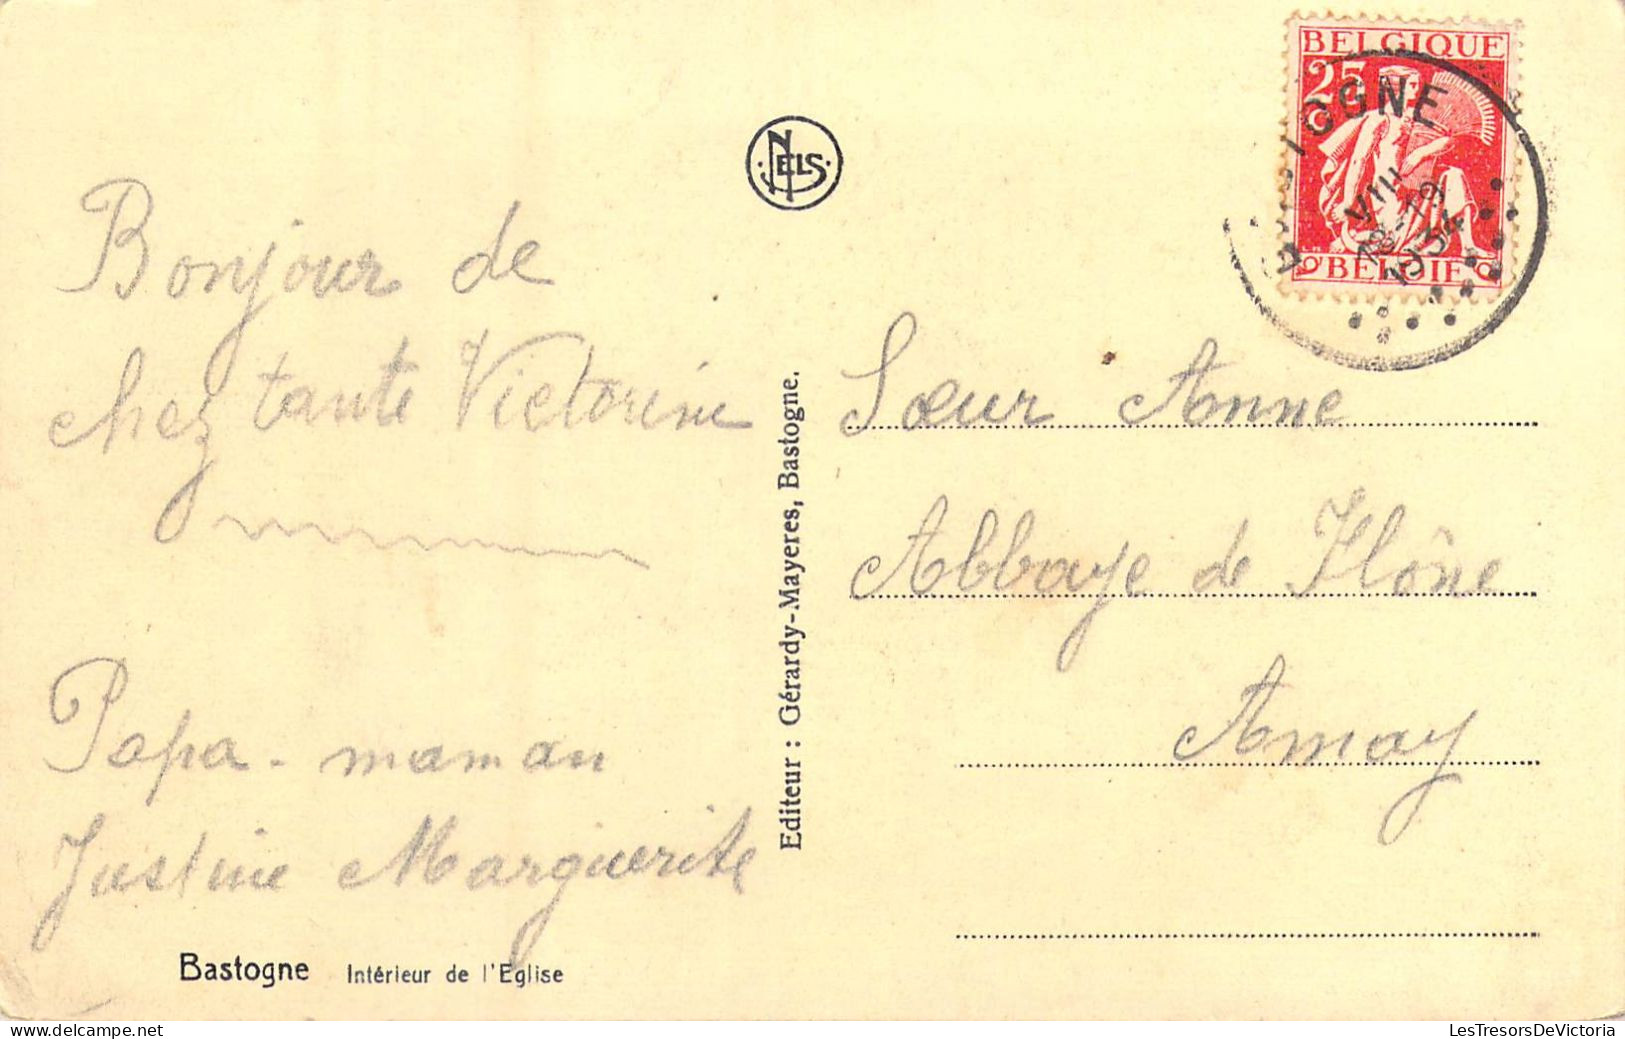 Bonjour de
chez tante Victorine
Papa - maman
Justine Marguerite
Bastogne Intérieur de l'Eglise
NELS
Editeur : Gérardy-Mayeres, Bastogne.
BELGIQUE
25
BELGIE
VIII
18-19
1934
Sœur Anne
Abbaye de Flône
Amay
delcampe.net
LesTresorsDeVictoria